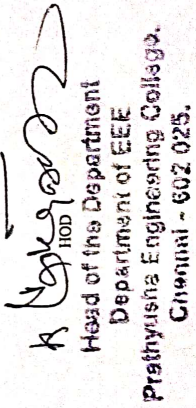 HOD
Head of the Department
Department of EEE
Prathyusha Engineering College.
Chennai - 602 025.